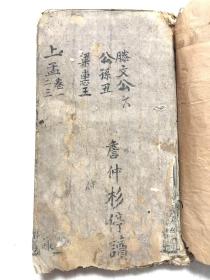 上孟卷一二三
滕文公
公孫丑
梁惠王
詹仲杉
讀